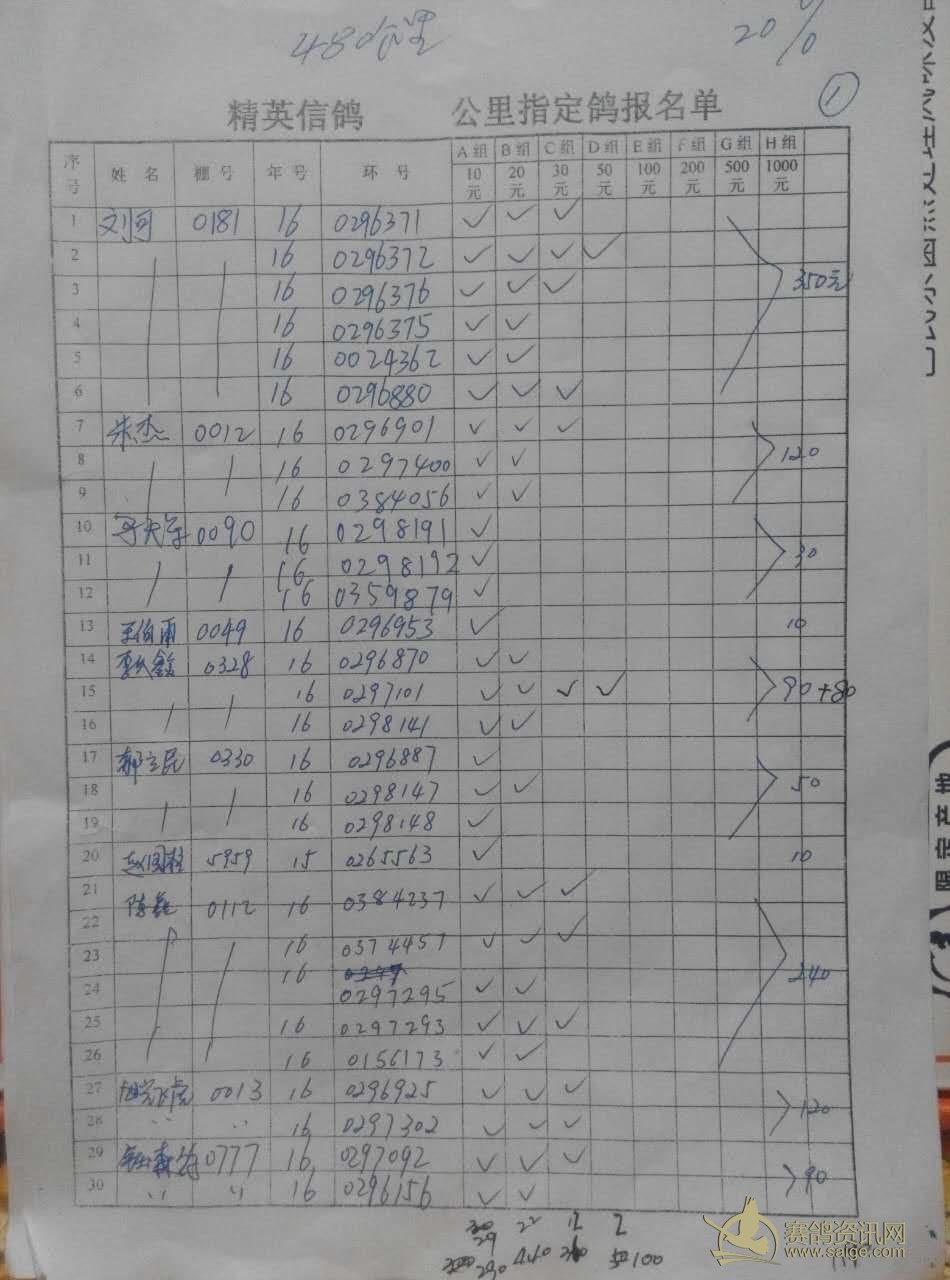 480公里
20%
①
精英信鸽 公里指定鸽报名单
序号 姓 名 棚 号 年 号 环 号 A组 10元 B组 20元 C组 30元 D组 50元 E组 100元 F组 200元 G组 500元 H组 1000元
1 刘可 0181 16 0296371 ✓ ✓ ✓
2 16 0296372 ✓ ✓ ✓ ✓
3 16 0296376 ✓ ✓ ✓ 350元
4 16 0296375 ✓ ✓
5 16 0024362 ✓ ✓
6 16 0296880 ✓ ✓ ✓
7 朱杰 0012 16 0296901 ✓ ✓ ✓
8 16 0297400 ✓ ✓ 120
9 16 0384056 ✓ ✓
10 0090 16 0298191 ✓
11 16 0298192 ✓ 30
12 16 0359879 ✓
13 王伯雨 0049 16 0296953 ✓ 10
14 0328 16 0296870 ✓ ✓
15 16 0297101 ✓ ✓ ✓ ✓ 90+80
16 16 0298141 ✓ ✓
17 郭立民 0330 16 0296887 ✓
18 16 0298147 ✓ ✓ 50
19 16 0298148 ✓
20 赵国柱 5959 15 0265563 ✓ 10
21 陈磊 0112 16 0384237 ✓ ✓ ✓
22
23 16 0374457 ✓ ✓ ✓
24 16 0297295 ✓ ✓ 240
25 16 0297293 ✓ ✓ ✓
26 16 0156173 ✓ ✓
27 0013 16 0296925 ✓ ✓ ✓
28 16 0297302 ✓ ✓ ✓ 120
29 0777 16 0297092 ✓ ✓ ✓
30 16 0296156 ✓ ✓ 90
30 22 12 2
29
290 440 100
赛鸽资讯网
www.saige.com